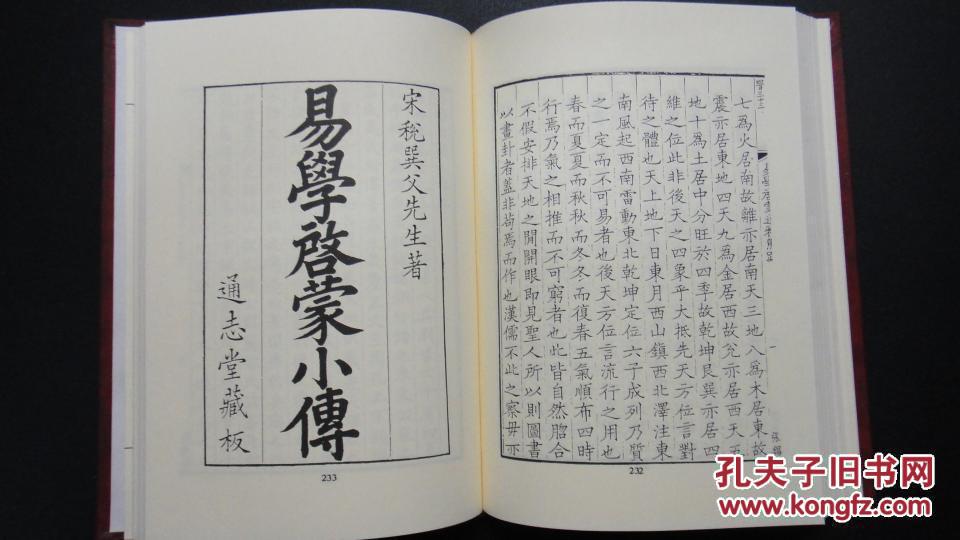 七為火居南故離亦居南天三地八為木居東故
震亦居東地四天九為金居西故兌亦居西天五
地十為土居中分旺於四季故乾坤艮巽亦居四
維之位此非後天之四象乎大抵先天方位言對
待之體也天上地下日東月西山鎮西北澤注東
南風起西南雷動東北乾坤定位六子成列乃質
之一定而不可易者也後天方位言流行之用也
春而夏夏而秋秋而冬冬而復春五氣順布四時
行焉乃氣之相推而不可窮者也此皆自然脗合
不假安排天地之間開眼即見聖人所以則圖書
以畫卦者蓋非苟焉而作也漢儒不此之察毋亦
232
宋稅巽父先生著
易學啓蒙小傳
通志堂藏板
233
孔夫子旧书网
www.kongfz.com